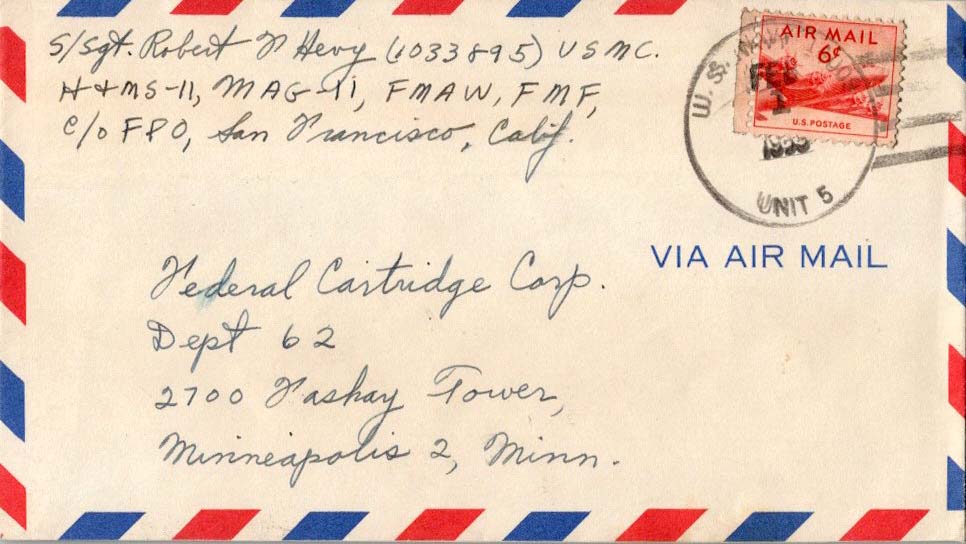 S/Sgt. Robert F Hevy (1033895) USMC.
H+MS-11, MAG-11, FMAW, FMF,
c/o FPO, San Francisco, Calif.
AIR MAIL
6¢
U.S. POSTAGE
U. S. NAVY
FEB
1
UNIT 5
VIA AIR MAIL
Federal Cartridge Corp.
Dept 62
2700 Foshay Tower,
Minneapolis 2, Minn.